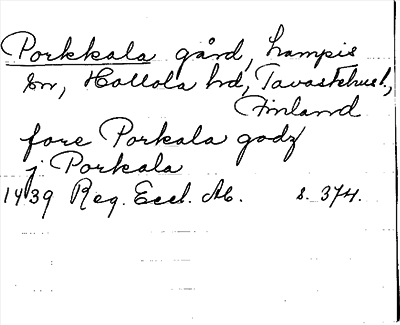 Porkkala gård, Lampis
sn, Hollola hd, Tavastehusl.,
Finland
fore Porkala godz
j Porkala
1439 Reg. Eccl. Ab. s. 374.